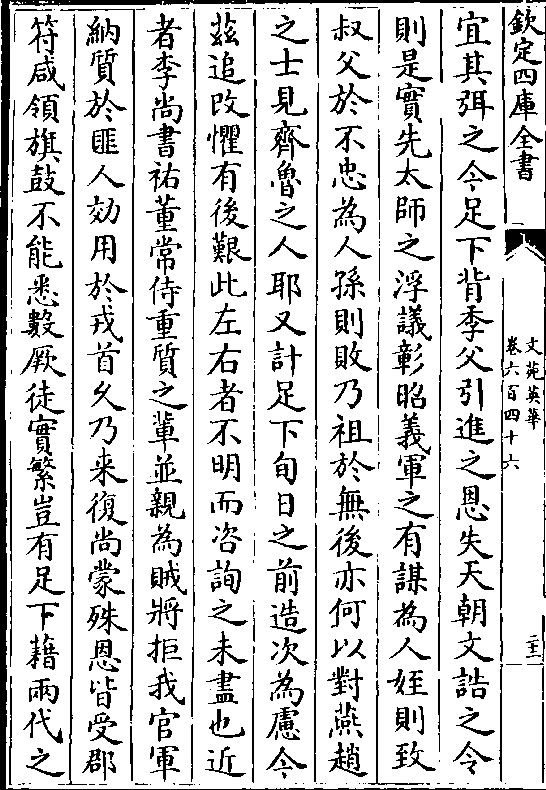 欽定四庫全書
文苑英華
卷六百四十六
二十一
宜其弭之今足下背季父引進之恩失天朝文誥之令
則是實先太師之浮議彰昭義軍之有謀為人姪則致
叔父於不忠為人孫則敗乃祖於無後亦何以對燕趙
之士見齊魯之人耶又計足下旬日之前造次為慮今
兹追改懼有後艱此左右者不明而咨詢之未盡也近
者李尚書祐董常侍重質之輩並親為賊將拒我官軍
納質於匪人効用於戎首久乃来復尚蒙殊恩皆受郡
符咸領旗鼓不能悉數厥徒實繁豈有足下藉兩代之